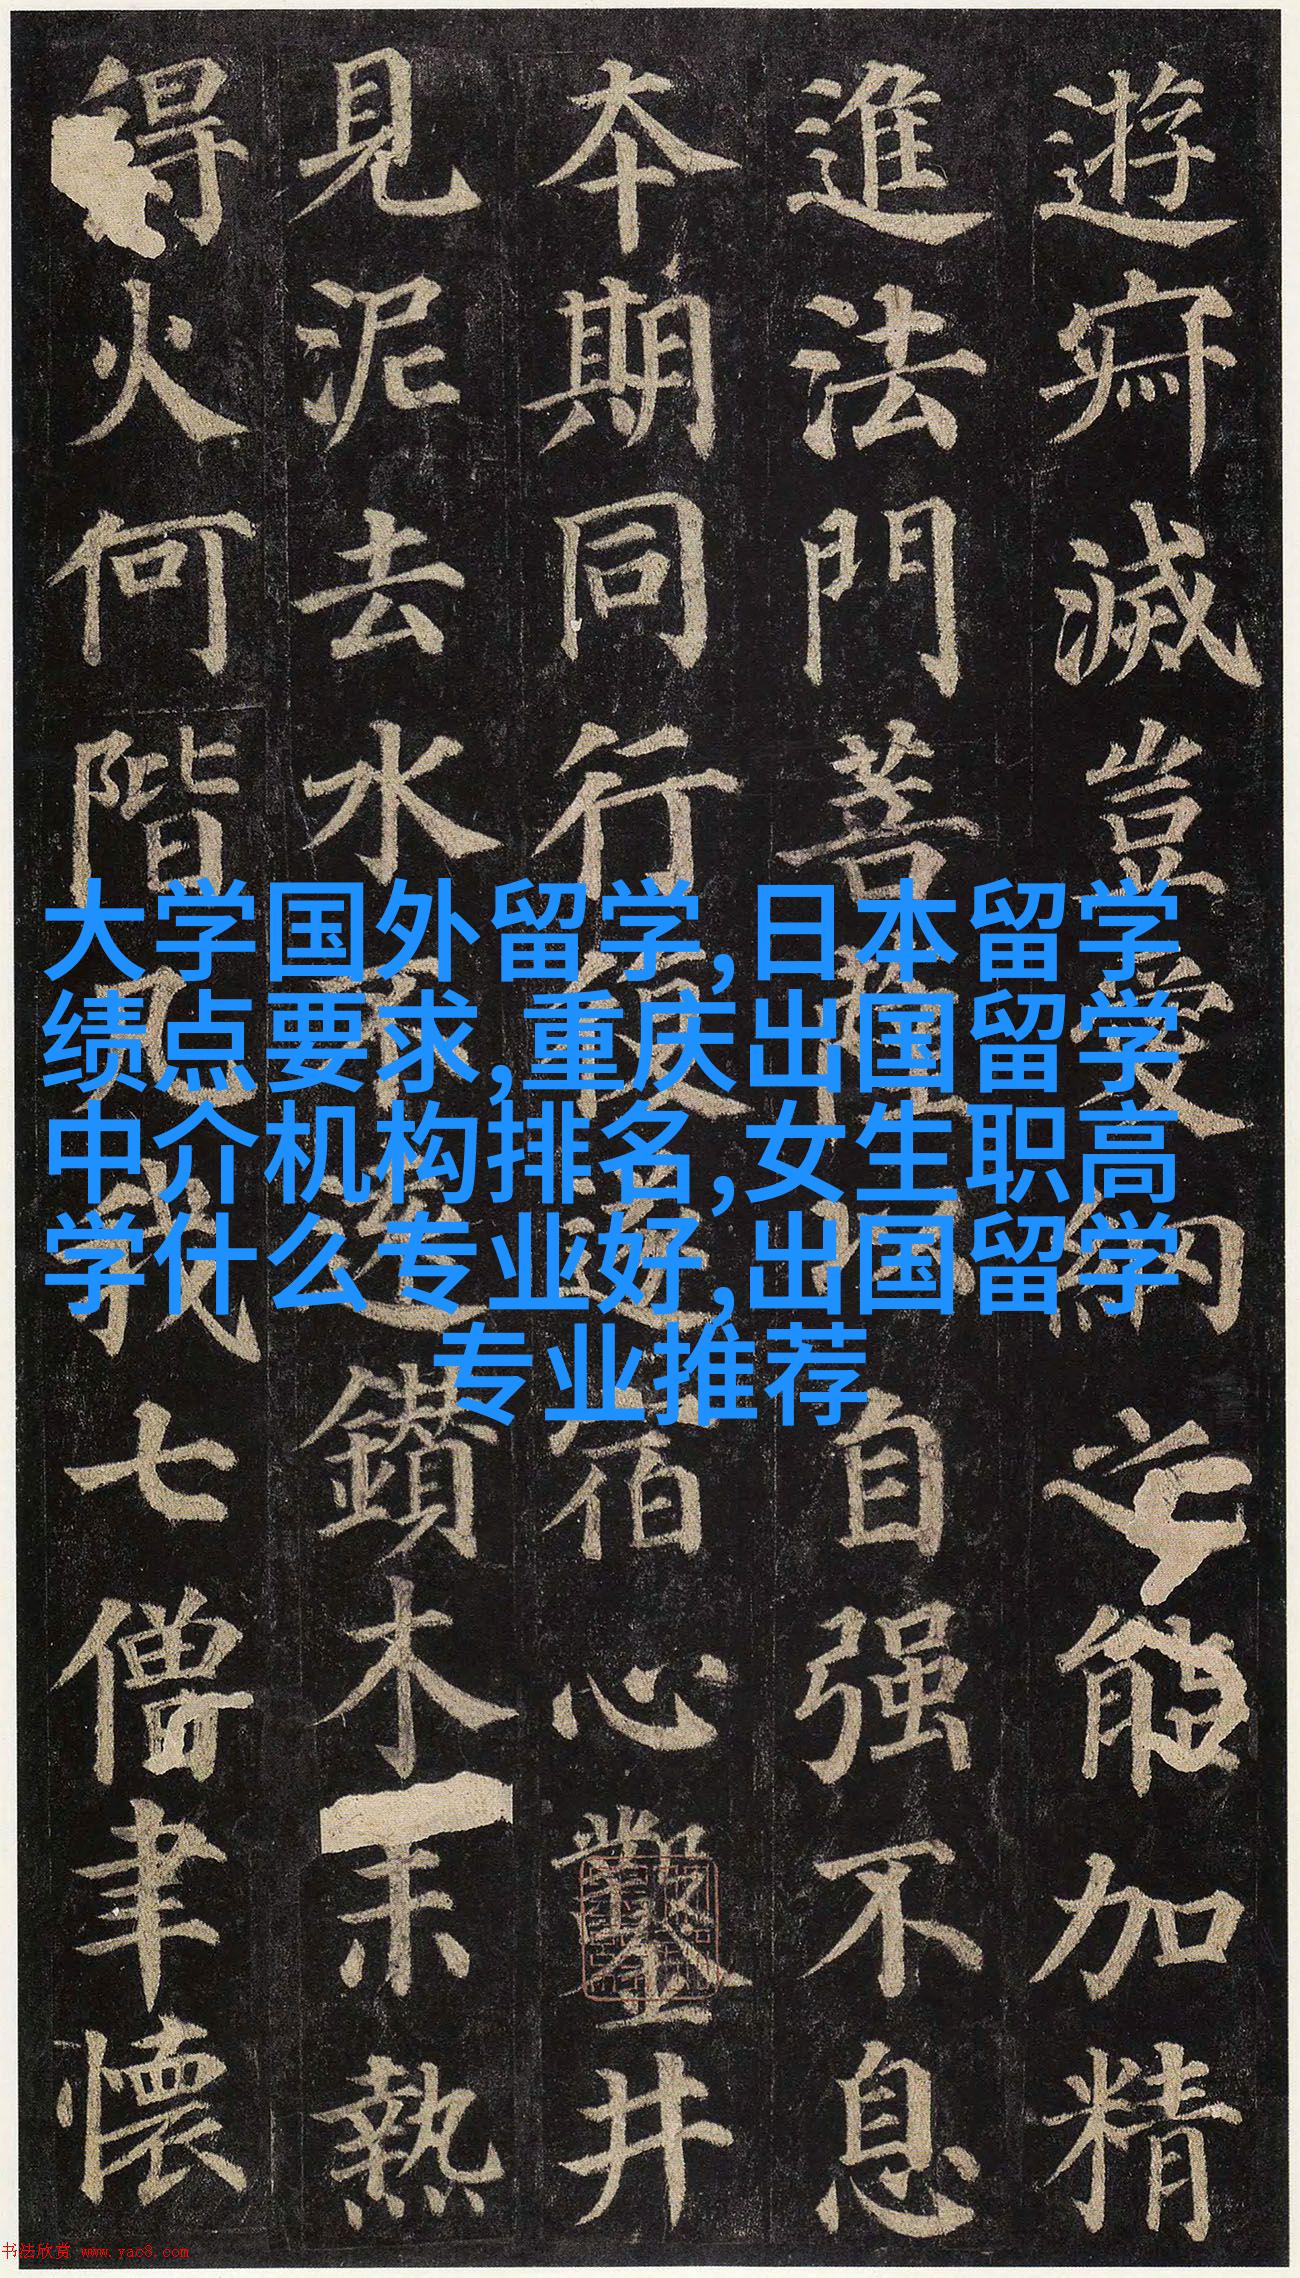 遊寂滅豈愛網之能加精
進法門菩薩以自强不息
本期同行復遂宿心鑿井
見泥去水不遠鑽木未熱
得火何階凡我七僧聿懷
大学国外留学,日本留学
绩点要求,重庆出国留学
中介机构排名,女生职高
学什么专业好,出国留学
专业推荐
书法欣赏 www.yac8.com